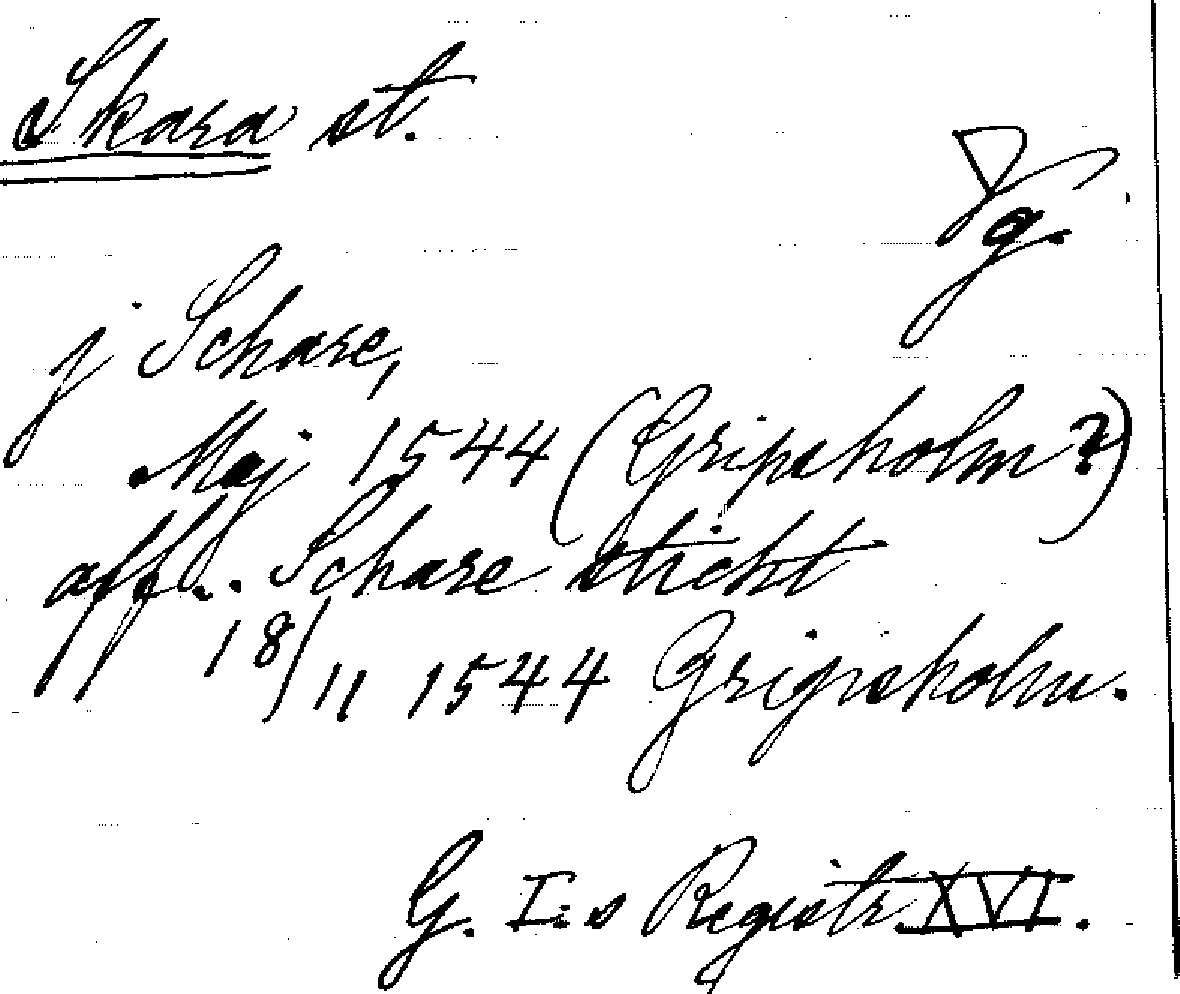 Skara st.
Vg.
j Schare,
Maj 1544 (Gripsholm?)
aff.. Schare sticht
18/11 1544 Gripsholm.
G. I:s Registr. XVI.